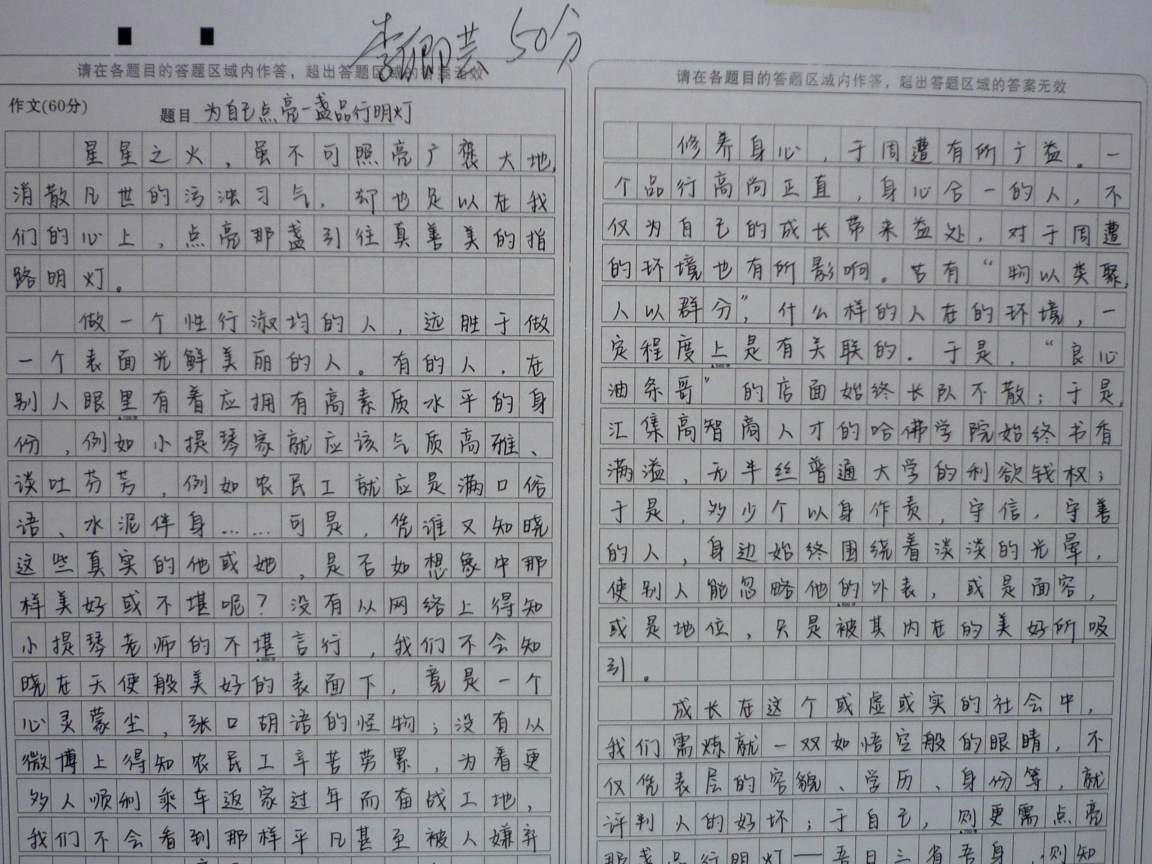 李卿芸 50分
请在各题目的答题区域内作答，超出答题区域的答案无效
作文(60分)
题目 为自己点亮一盏品行明灯
星星之火，虽不可照亮广袤大地，
消散凡世的污浊习气，却也足以在我
们的心上，点亮那盏引往真善美的指
路明灯。
做一个性行淑均的人，远胜于做
一个表面光鲜美丽的人。有的人，在
别人眼里有着应拥有高素质水平的身
份，例如小提琴家就应该气质高雅、
谈吐芬芳，例如农民工就应是满口俗
语、水泥伴身……可是，凭谁又知晓
这些真实的他或她，是否如想象中那
样美好或不堪呢？没有从网络上得知
小提琴老师的不堪言行，我们不会知
晓在天使般美好的表面下，竟是一个
心灵蒙尘，张口胡语的怪物；没有从
微博上得知农民工辛苦劳累，为着更
多人顺利乘车返家过年而奋战工地，
我们不会看到那样平凡甚至被人嫌弃
请在各题目的答题区域内作答，超出答题区域的答案无效
修养身心，于周遭有所广益。一
个品行高尚正直，身心合一的人，不
仅为自己的成长带来益处，对于周遭
的环境也有所影响。古有“物以类聚，
人以群分”，什么样的人在的环境，一
定程度上是有关联的。于是，“良心
油条哥”的店面始终长队不散；于是，
汇集高智商人才的哈佛学院始终书香
满溢，无半丝普通大学的利欲钱权；
于是，多少个以身作责，守信，守善
的人，身边始终围绕着淡淡的光晕，
使别人能忽略他的外表，或是面容，
或是地位，只是被其内在的美好所吸
引。
成长在这个或虚或实的社会中，
我们需炼就一双如悟空般的眼睛，不
仅凭表层的容貌、学历、身份等，就
评判人的好坏；于自己，则更需点亮
那盏品行明灯——吾日三省吾身，则知